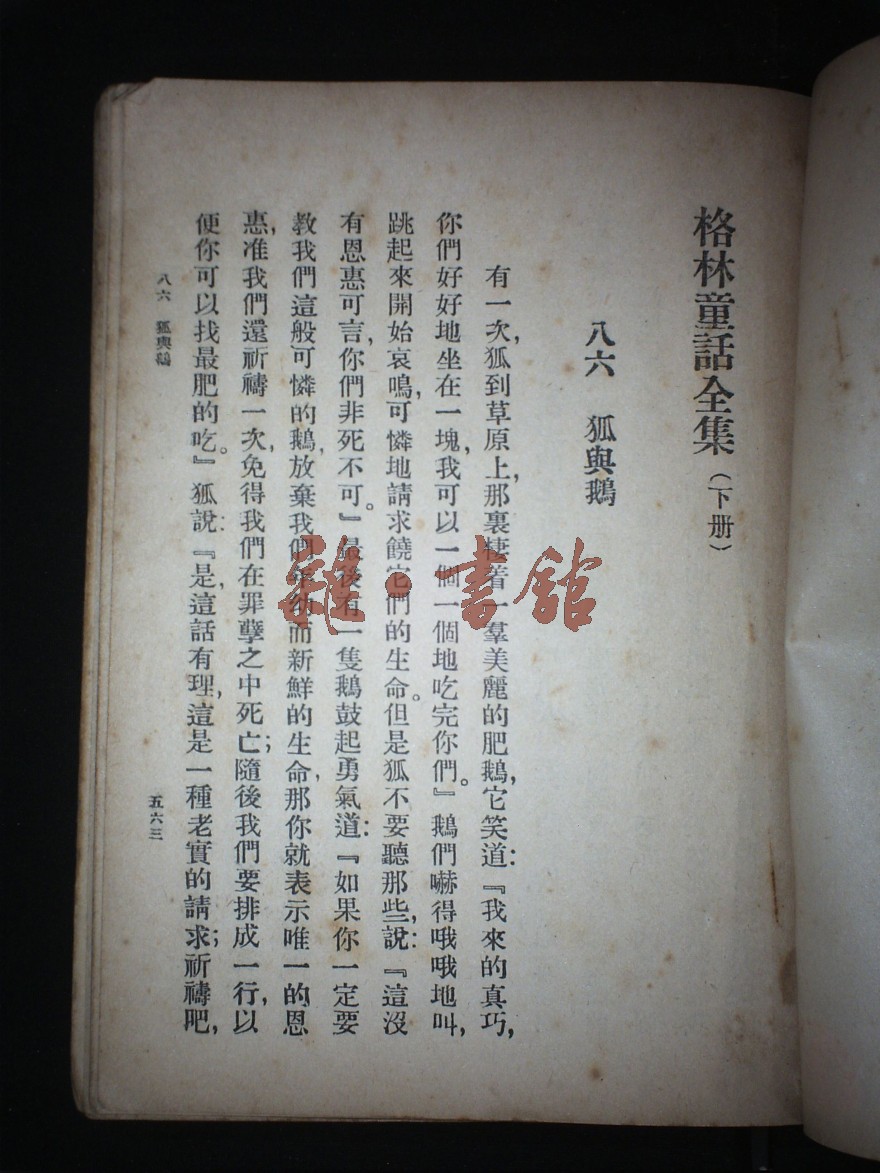 格林童話全集（下册）
八六　狐與鵝
有一次，狐到草原上，那裏棲着一羣美麗的肥鵝，它笑道：『我來的真巧，
你們好好地坐在一塊，我可以一個一個地吃完你們。』鵝們嚇得哦哦地叫，
跳起來開始哀鳴，可憐地請求饒它們的生命。但是狐不要聽那些，說：『這沒
有恩惠可言，你們非死不可。』最後有一隻鵝鼓起勇氣道：『如果你一定要
教我們這般可憐的鵝，放棄我們年幼而新鮮的生命，那你就表示唯一的恩
惠，准我們還祈禱一次，免得我們在罪孽之中死亡；隨後我們要排成一行，以
便你可以找最肥的吃。』狐說：『是，這話有理，這是一種老實的請求；祈禱吧，
八六　狐與鵝
五六三
雜·書館